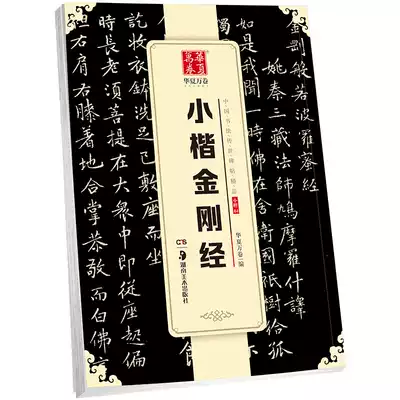 金剛般若波羅蜜經
姚秦三藏法師鳩摩羅什譯
如是我聞一時佛在舍衛國祇樹給孤
華夏萬卷
华夏万卷
中国书法传世碑帖精品
小楷金刚经
华夏万卷 编
湖南美术出版社
訖收衣鉢洗足已敷座而坐
時長老須菩提在大衆中即從座起偏
袒右肩右膝著地合掌恭敬而白佛